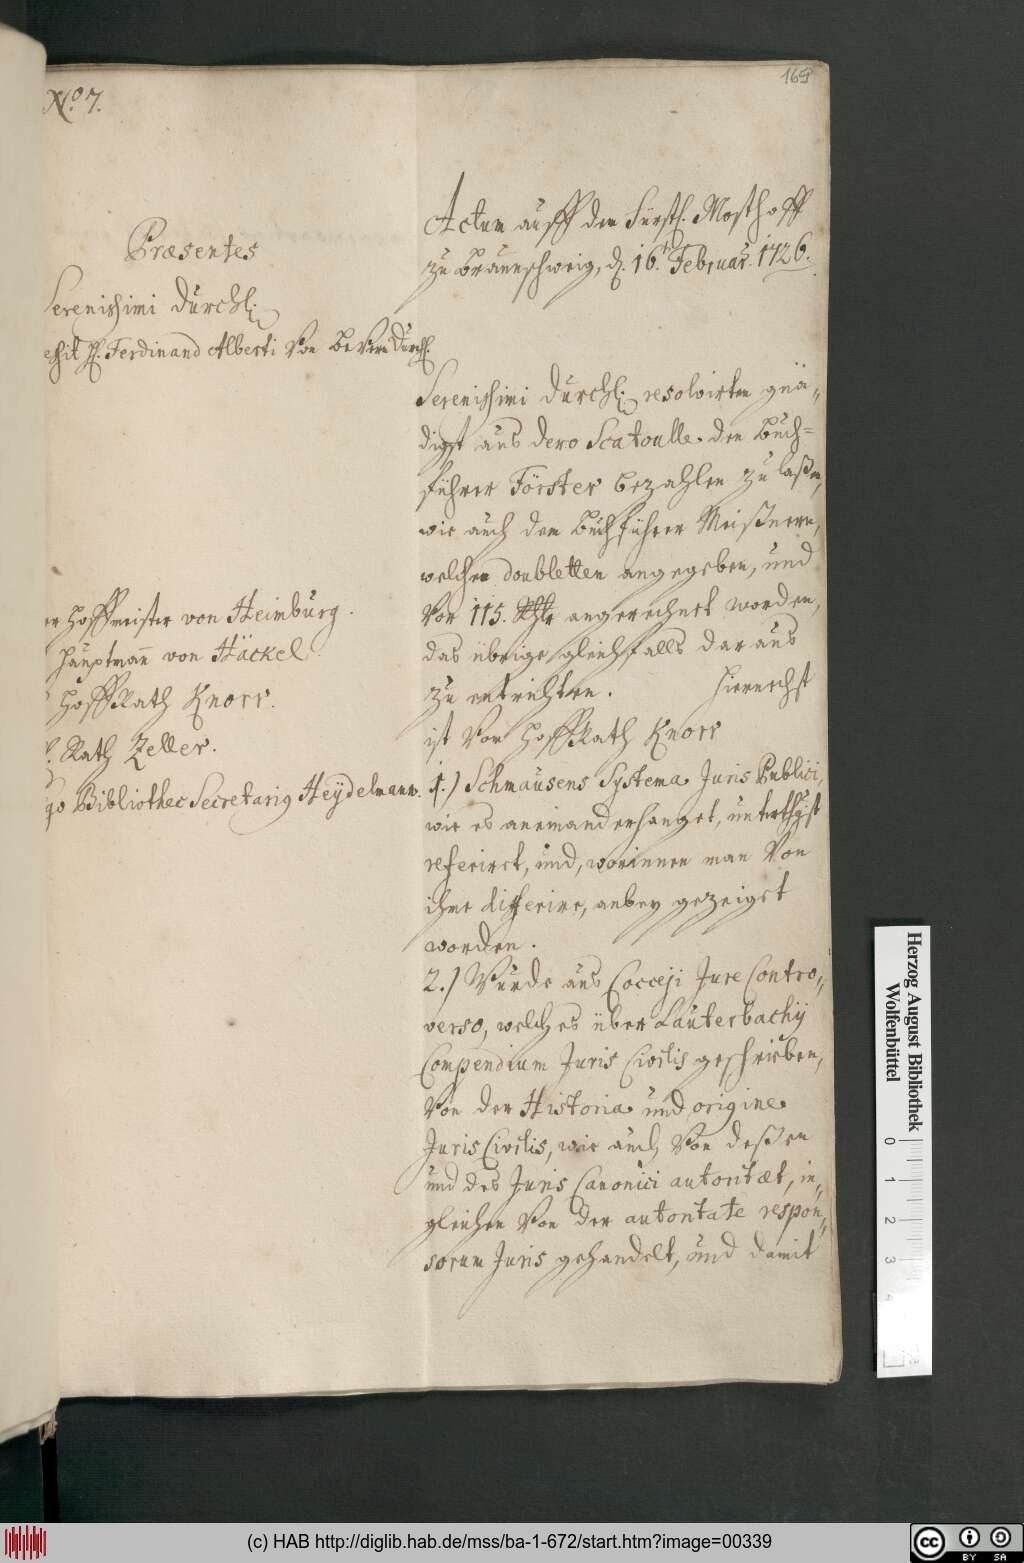 No. 7.
169
Præsentes
Serenissimi Durchl.
H. Ferdinand Alberti von Bevern Durchl.
Hoffmeister von Heimburg.
Hauptmann von Häckel
HoffRath Knorr.
Rath Zeller.
Bibliothec Secretarig Heÿdelmann.
Actum auff dem Fürstl. Mosthoff
zu Braunschweig, d. 16. Februar. 1726.
Serenissimi Durchl. resolvirten gnä-
digst aus dero Scatoulle den Buch=
führer Förster bezahlen zu laßen,
wie auch dem Buchführer Meißnern,
welchem doubletten angegeben, und
vor 115. Rthlr angerechnet worden,
das übrige gleichfalls daraus
zu entrichten. Hiernechst
ist von HoffRath Knorr
1.) Schmausens Systema Juris Publici,
wie es aneinanderhanget, unterthgst
referiret, und, worinnen man von
ihme differire, anbey gezeiget
worden.
2.) Wurde aus Cocceji Jure Contro-
verso, welches über Lauterbachij
Compendium Juris Civilis geschrieben,
von der Historia und origine
Juris Civilis, wie auch von deßen
und des Juris Canonici autoritæt, in-
gleichen von der autoritate respon-
sorum Juris gehandelt, und damit
Herzog August Bibliothek
Wolfenbüttel
0
1
2
3
4
(c) HAB http://diglib.hab.de/mss/ba-1-672/start.htm?image=00339
cc
BY SA